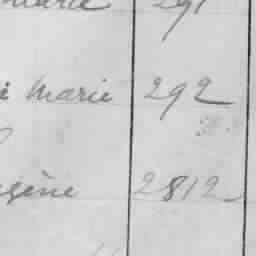 marie 291
i Marie 292
gène 2812